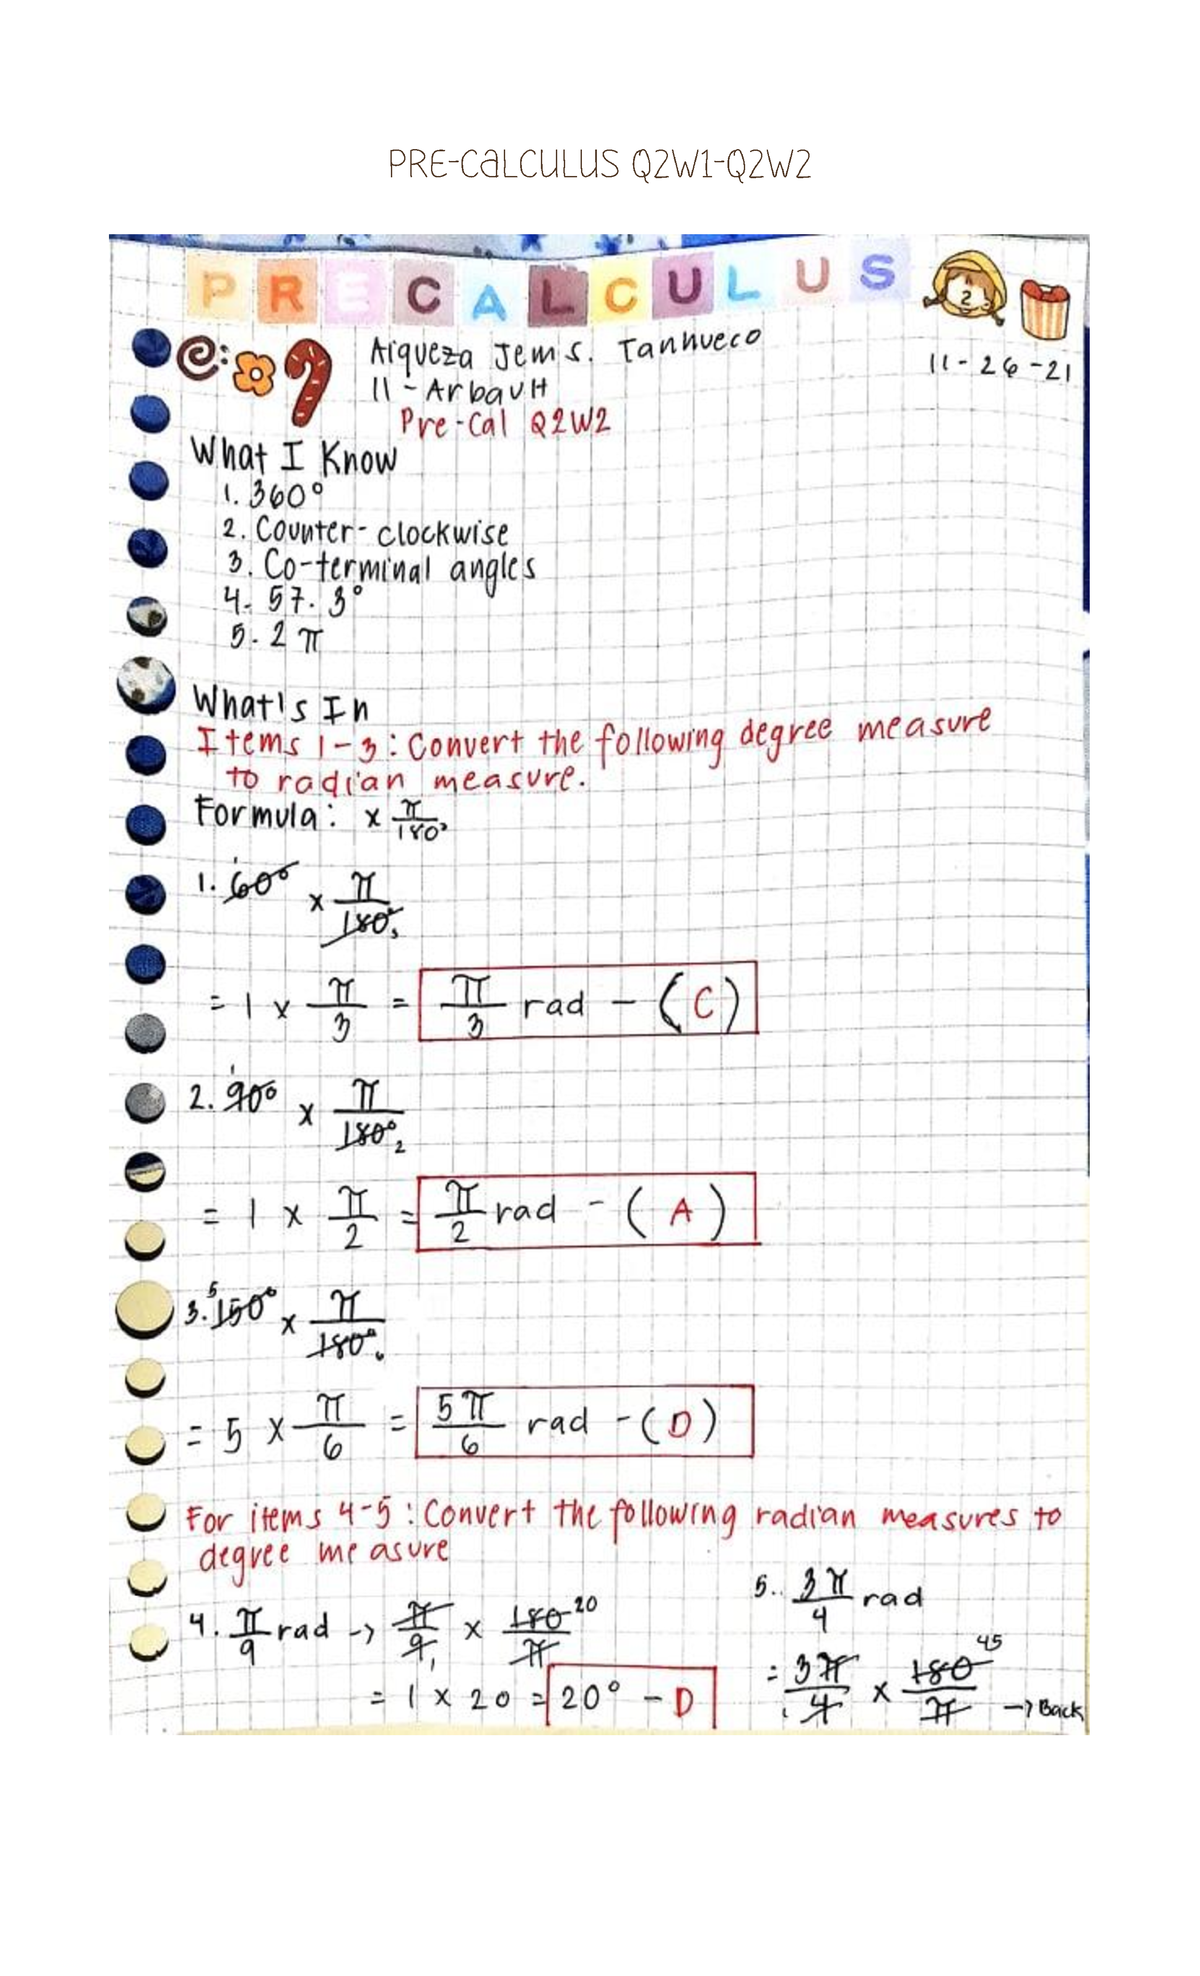 PRE-CALCULUS Q2W1-Q2W2
PRECALCULUS
2
Aiqueza Jem S. Tanhueco
11-26-21
11 - Arbault
Pre-Cal Q2W2
What I Know
1. 360°
2. Counter-clockwise
3. Co-terminal angles
4. 57.3°
5. 2π
What's In
Items 1-3: Convert the following degree measure
to radian measure.
Formula: x π/180°
1. 60° x π/180° 3
= 1 x π/3 = π/3 rad - (C)
2. 90° x π/180° 2
= 1 x π/2 = π/2 rad - (A)
3. 5 150° x π/180° 6
= 5 x π/6 = 5π/6 rad - (D)
For items 4-5: Convert the following radian measures to
degree measure
4. π/9 rad -> π/9 1 x 180/π 20
= 1 x 20 = 20° - D
5. 3π/4 rad
= 3π/4 1 x 180/π 45
-> Back